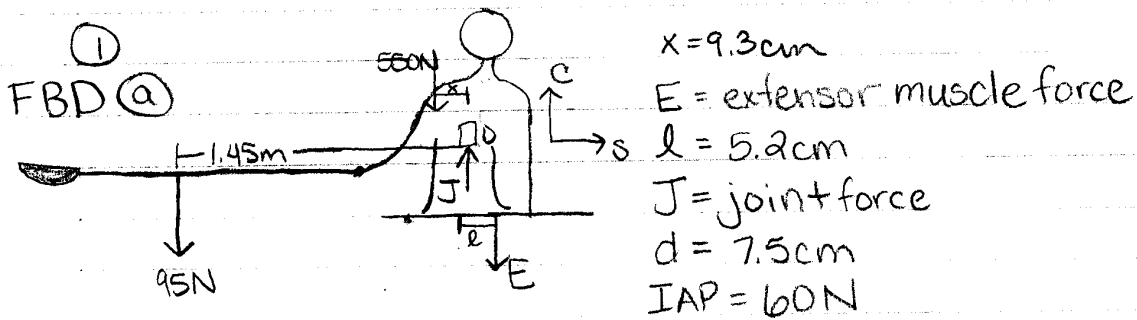 ①
FBD ⓐ
550N
x
1.45m
J
l
95N
E
C
S
x = 9.3cm
E = extensor muscle force
l = 5.2cm
J = joint force
d = 7.5cm
IAP = 60N